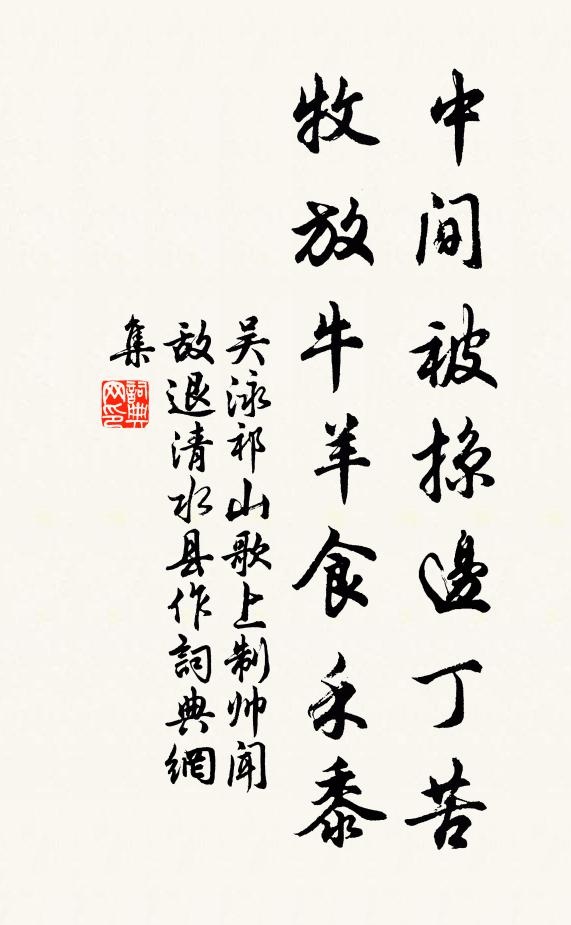 中间被掠邊丁苦
牧放牛羊食禾黍
吴泳祁山歌上制帅闻
敌退清水县作詞典網
集
詞典网印